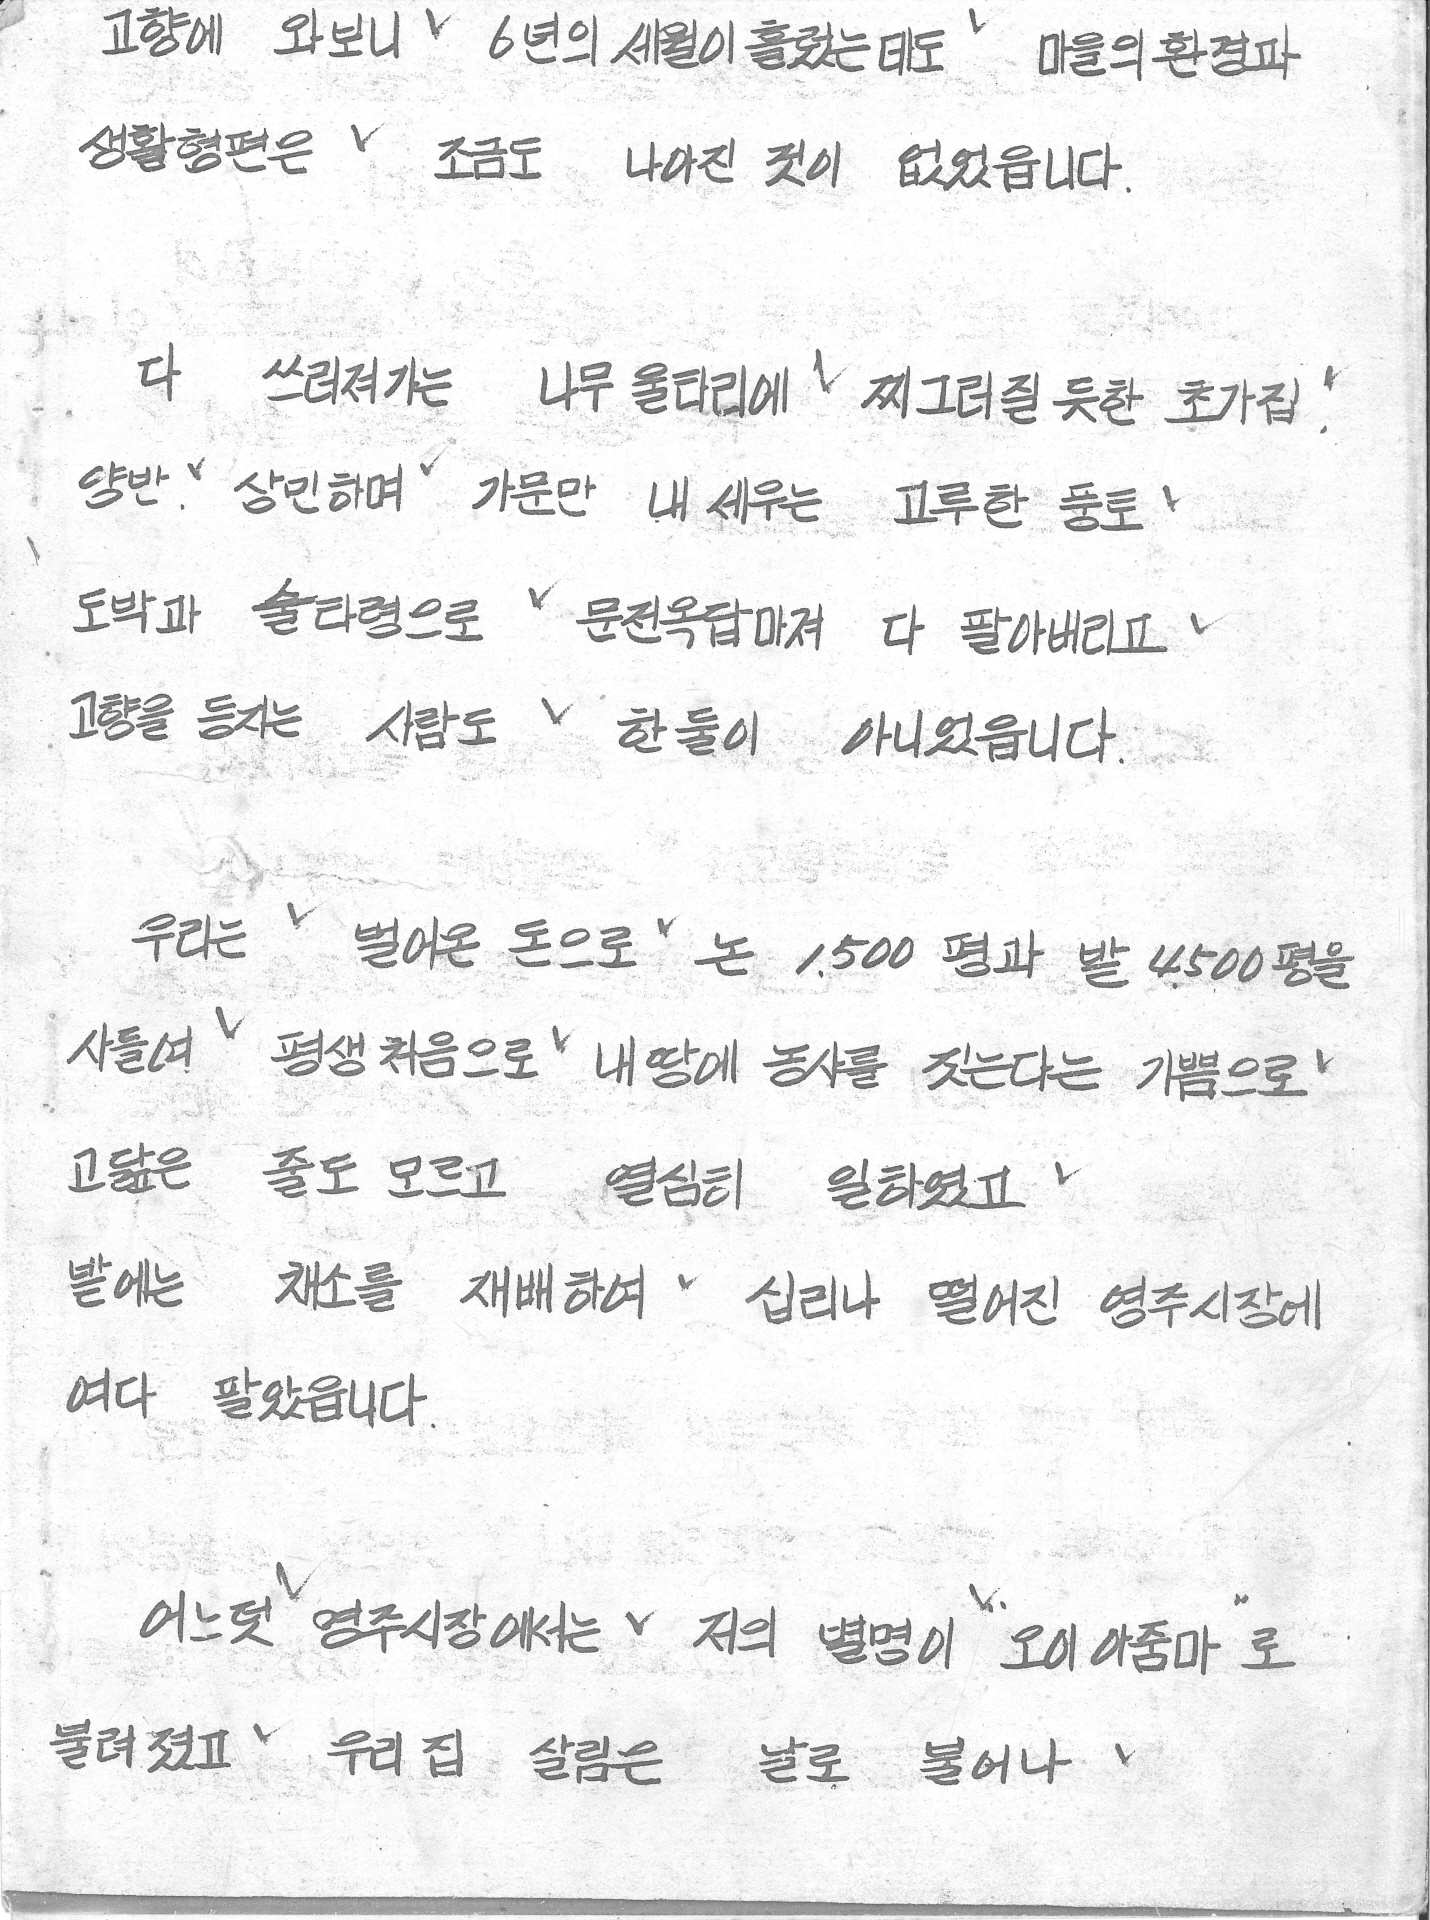 고향에 와보니 6년의 세월이 흘렀는데도 마을의 환경과
생활형편은 조금도 나아진 것이 없었읍니다.
다 쓰러져가는 나무 울타리에 찌그러질 듯한 초가집.
양반. 상민하며 가문만 내 세우는 고루한 풍토
도박과 술타령으로 문전옥답마져 다 팔아버리고
고향을 등지는 사람도 한둘이 아니었읍니다.
우리는 벌어온 돈으로 논 1,500평과 밭 4,500평을
사들여 평생처음으로 내땅에 농사를 짓는다는 기쁨으로
고닲은 줄도 모르고 열심히 일하였고
밭에는 채소를 재배하여 십리나 떨어진 영주시장에
여다 팔았읍니다.
어느덧 영주시장에서는 저의 별명이 "오이아줌마"로
불려졌고 우리집 살림은 날로 불어나